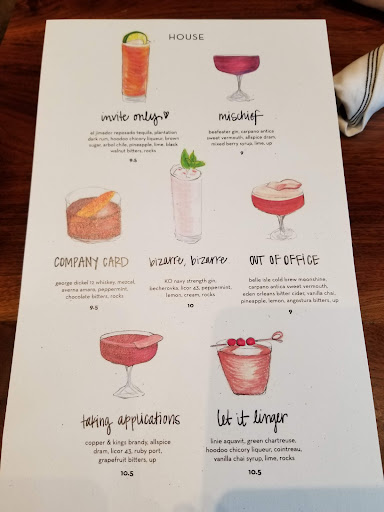 HOUSE
invite only
el jimador reposado tequila, plantation
dark rum, hoodoo chicory liqueur, brown
sugar, arbol chile, pineapple, lime, black
walnut bitters, rocks
9.5
mischief
beefeater gin, carpano antica
sweet vermouth, allspice dram
mixed berry syrup, lime, up
9
COMPANY CARD
george dickel 12 whiskey, mezcal,
averna amaro, peppermint,
chocolate bitters, rocks
9.5
bizarre, bizarre
KO navy strength gin,
becherovka, licor 43, peppermint,
lemon, cream, rocks
10
OUT OF OFFICE
belle isle cold brew moonshine,
carpano antica sweet vermouth,
eden orleans bitter cider, vanilla chai,
pineapple, lemon, angostura bitters, up
9
taking applications
copper & kings brandy, allspice
dram, licor 43, ruby port,
grapefruit bitters, up
10.5
let it linger
linie aquavit, green chartreuse,
hoodoo chicory liqueur, cointreau,
vanilla chai syrup, lime, rocks
10.5